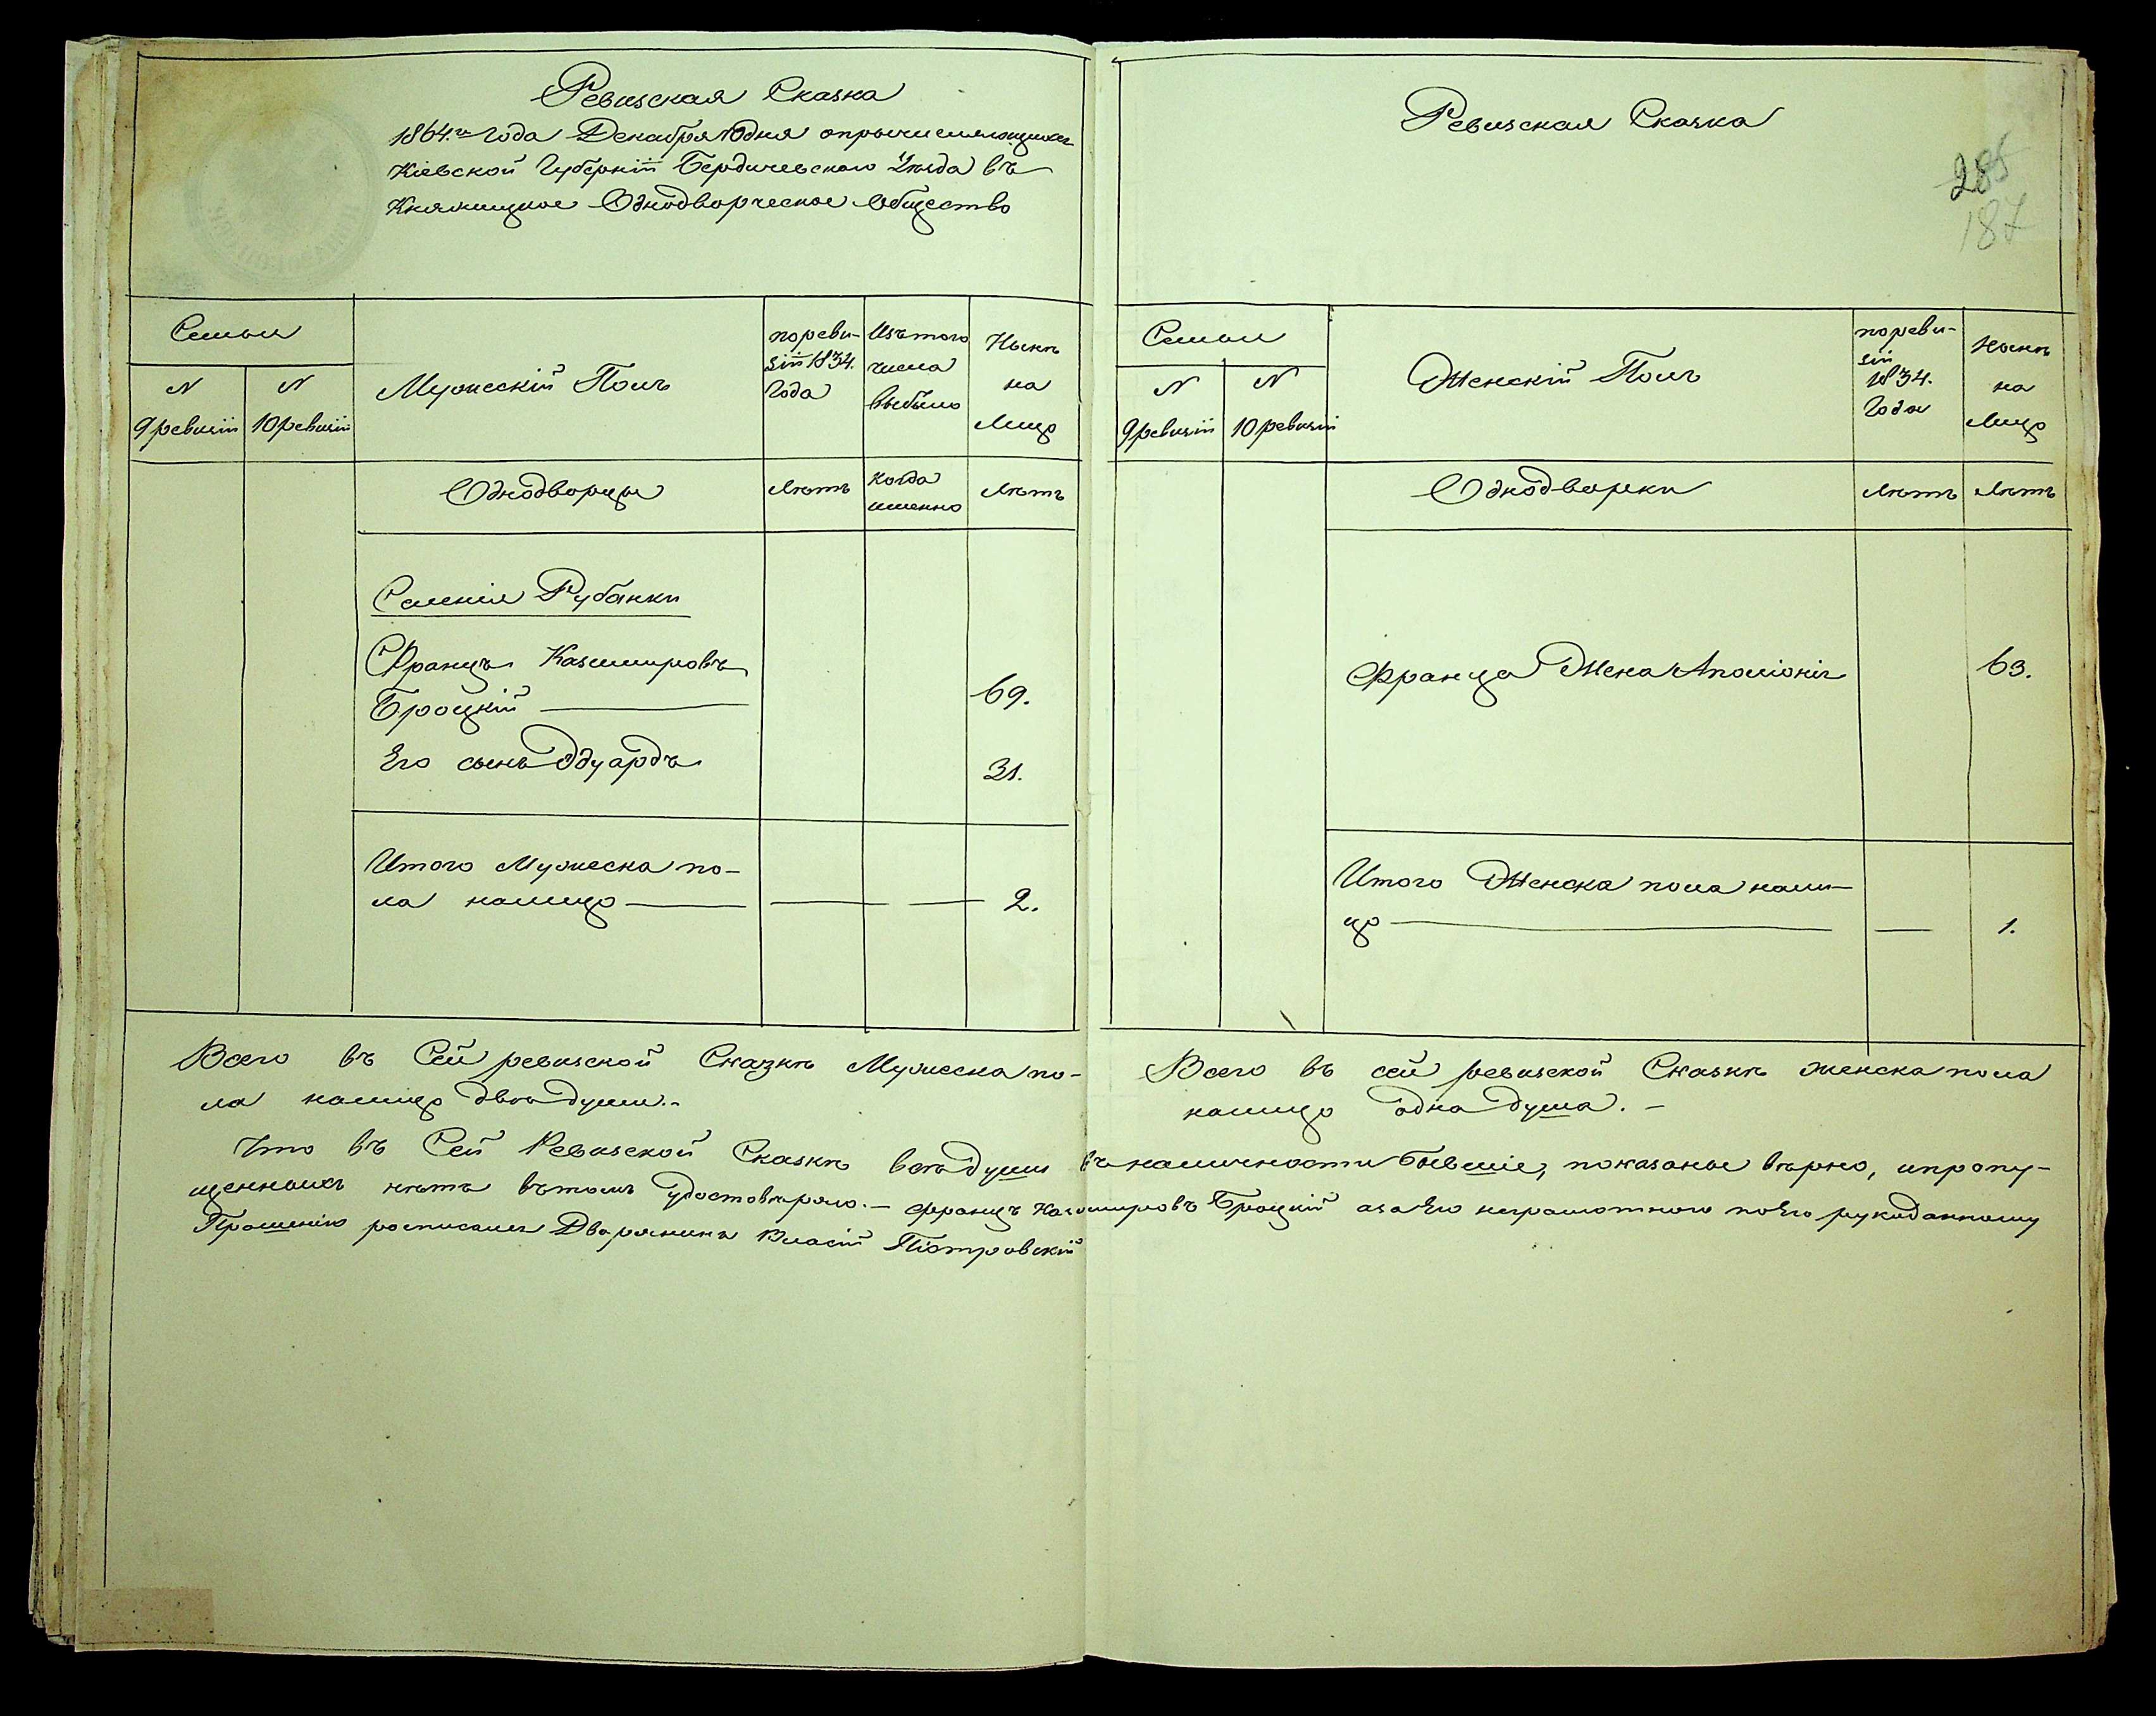 Ревизская Сказка
1864го года Декабря 10 дня опричисляющихся
Кіевской Губерніи Бердичевскаго Уѣзда въ
Княжицкое Однодворческое Общество
Семьи
N
9 ревизіи
N
10 ревизіи
Мужескій Полъ
по реви-
зіи 1834.
года
Изъ того
числа
выбыло
Нынѣ
на
лицо
Однодворцы
лѣтъ
когда
именно
лѣтъ
Селенія Рубанки
Францъ Казимировъ
Броцкій 69.
Его сынъ Эдуардъ 31.
Итого Мужеска по-
ла налицо 2.
Всего въ Сей ревизской Сказкѣ Мужеска по-
ла налицо двѣ души.-
Ревизская Сказка
285
187
Семьи
N
9 ревизіи
N
10 ревизіи
Женскій Полъ
по реви-
зіи
1834.
года
Нынѣ
на
лицо
Однодворки
лѣтъ
лѣтъ
Франца Жена Аполіонія 63.
Итого Женска пола нали-
цо 1.
Всего въ сей ревизской Сказкѣ женска пола
налицо одна душа.-
Что въ Сей Ревизской Сказкѣ всѣ души въ наличности бывшіе, показаные вѣрно, и пропу-
щенныхъ нѣтъ въ томъ удостовѣряю.- Францъ Казимировъ Броцкій а за Его неграмотного по Его рукоданному
Прошенію росписался Дворянинъ Власій Піотровскій